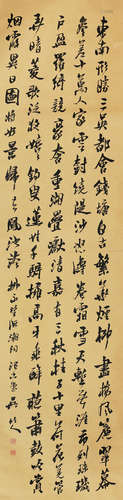 東南形勝三吳都會錢塘自古繁華煙柳畫橋風簾翠幕
參差十萬人家雲樹繞堤沙怒濤卷霜雪天塹無涯市列珠璣
戶盈羅綺競豪奢重湖疊巘清嘉有三秋桂子十里荷花羌管
弄晴菱歌泛夜嬉嬉釣叟蓮娃千騎擁高牙乘醉聽簫鼓吟賞
煙霞異日圖將好景歸去鳳池誇 柳永望海潮詞